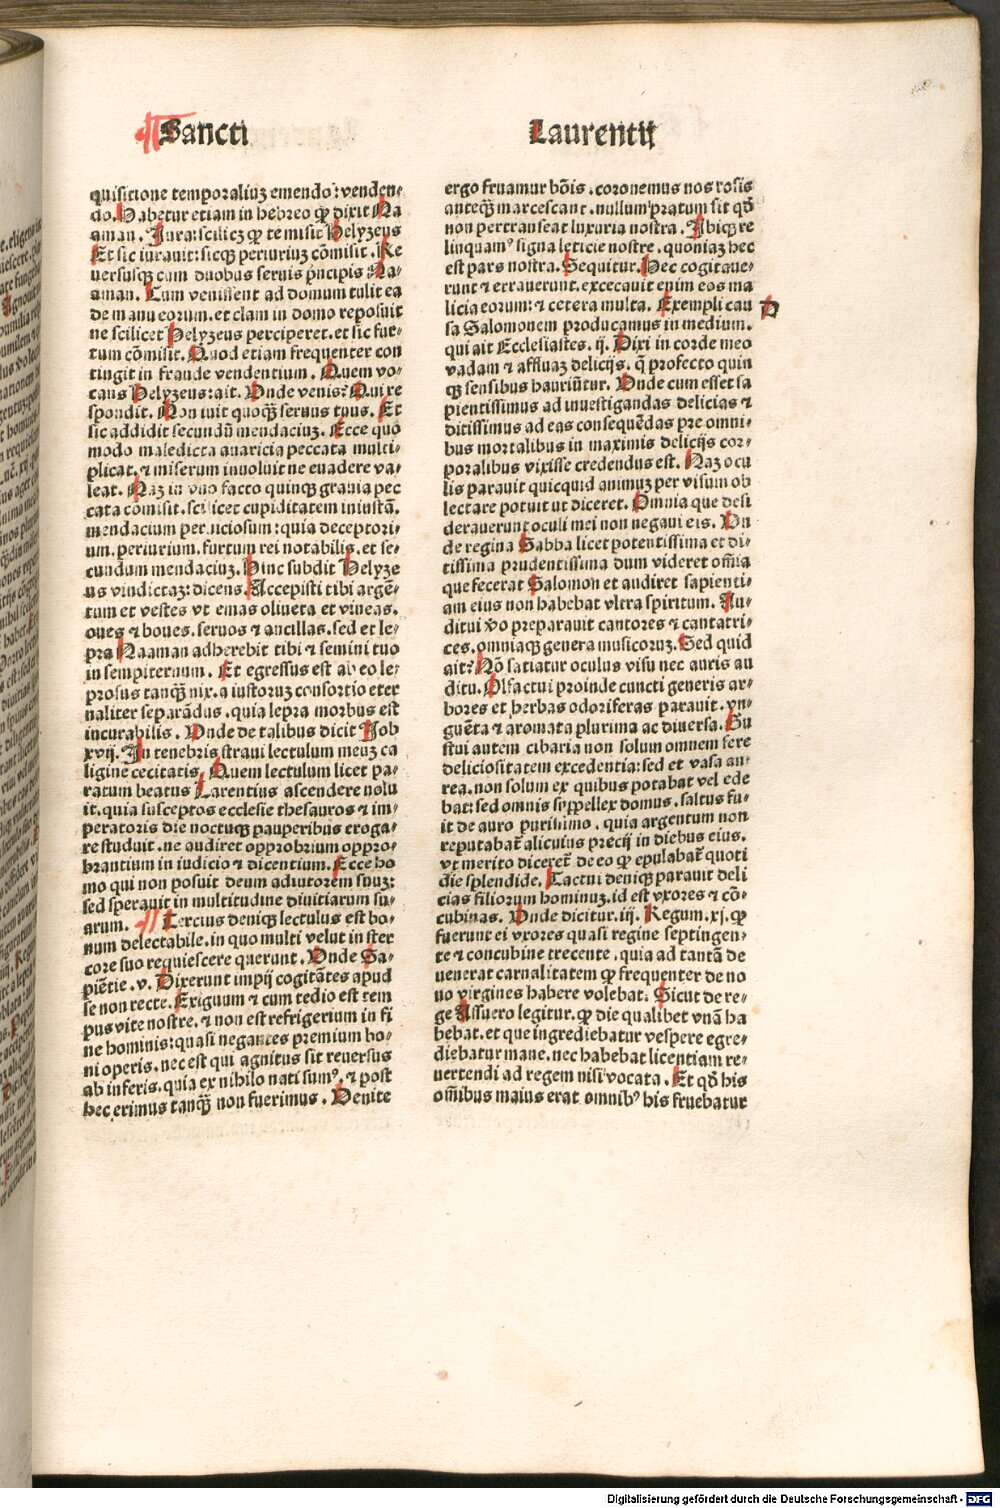 Sancti Laurentij
quisitione temporaliuʒ emendo: venden⸗
do. Habetur etiam in hebreo ꝙ dixit Na
aman. Jura: scilicʒ ꝙ te misit Helyʒeus
Et sic iurauit: sicqʒ periuriuʒ cōmisit. Re
uersusqʒ cum duobus seruis pncipis Na⸗
aman. Cum venissent ad domum tulit ea
de manu eorum. et clam in domo reposuit
ne scilicet Helyʒeus perciperet. et sic fur⸗
tum cōmisit. Quod etiam frequenter con
tingit in fraude vendentium. Quem vo⸗
cans Helyʒeus: ait. Vnde venis? Qui re
spondit. Non iuit quoqʒ seruus tuus. Et
sic addidit secundū mendaciuʒ. Ecce quo
modo maledicta auaricia peccata multi⸗
plicat. ⁊ miserum inuoluit ne euadere va⸗
leat. Naʒ in vno facto quinqʒ grauia pec
cata cōmisit. scilicet cupiditatem iniustā.
mendacium perniciosum: quia deceptori⸗
um. periurium. furtum rei notabilis. et se⸗
cundum mendaciuʒ. Hinc subdit Helyʒe
us vindictaʒ: dicens. Accepisti tibi argē⸗
tum et vestes vt emas oliueta et vineas.
oues ⁊ boues. seruos ⁊ ancillas. sed et le⸗
pra Naaman adherebit tibi ⁊ semini tuo
in sempiternum. Et egressus est ab eo le⸗
prosus tanqʒ̄ nix. a iustoruʒ consortio eter
naliter separādus. quia lepra morbus est
incurabilis. Vnde de talibus dicit Job
xvij. In tenebris straui lectulum meuʒ ca
ligine cecitatis. Quem lectulum licet pa⸗
ratum beatus Larentius ascendere nolu
it. quia susceptos ecclesie thesauros ⁊ im⸗
peratoris die noctuqʒ pauperibus eroga⸗
re studuit. ne audiret opprobrium oppro⸗
brantium in iudicio ⁊ dicentium. Ecce ho
mo qui non posuit deum adiutorem suuʒ:
sed sperauit in multitudine diuitiarum su⸗
arum. ¶ Tercius deniqʒ lectulus est bo⸗
num delectabile. in quo multi velut in ster
core suo requiescere querunt. Vnde Sa⸗
piētie. v. Dixerunt impij cogitātes apud
se non recte. Exiguum ⁊ cum tedio est tem
pus vite nostre. ⁊ non est refrigerium in fi
ne hominis: quasi negantes premium bo⸗
ni operis. nec est qui agnitus sit reuersus
ab inferis. quia ex nihilo nati sumꝰ. ⁊ post
hec erimus tanqʒ̄ non fuerimus. Venite
ergo fruamur bōis. coronemus nos rosis
anteqʒ̄ marcescant. nullum pratum sit qd̄
non pertranseat luxuria nostra. Ibiqʒ re
linquamꝰ signa leticie nostre. quoniaʒ hec
est pars nostra. Sequitur. Hec cogitaue⸗
runt ⁊ errauerunt. excecauit enim eos ma
licia eorum: ⁊ cetera multa. Exempli cau D
sa Salomonem producamus in medium.
qui ait Ecclesiastes. ij. Dixi in corde meo
vadam ⁊ affluaʒ delicijs. q̄ profecto quin
qʒ sensibus hauriūtur. Vnde cum esset sa
pientissimus ad inuestigandas delicias ⁊
ditissimus ad eas consequēdas pre omni⸗
bus mortalibus in maximis delicijs cor⸗
poralibus vixisse credendus est. Naʒ ocu
lis parauit quicquid animuʒ per visum ob
lectare potuit vt diceret. Omnia que desi
derauerunt oculi mei non negaui eis. Vn
de regina Sabba licet potentissima et di⸗
tissima prudentissima dum videret om̄ia
que fecerat Salomon et audiret sapienti⸗
am eius non habebat vltra spiritum. Au⸗
ditui v̄o preparauit cantores ⁊ cantatri⸗
ces. omniaqʒ genera musicoruʒ. Sed quid
ait? Nō satiatur oculus visu nec auris au
ditu. Olfactui proinde cuncti generis ar⸗
bores et herbas odoriferas parauit. vn⸗
guēta ⁊ aromata plurima ac diuersa. Gu
stui autem cibaria non solum omnem fere
deliciositatem excedentia: sed et vasa au⸗
rea. non solum ex quibus potabat vel ede
bat: sed omnis suppellex domus. saltus fu⸗
it de auro purissimo. quia argentum non
reputabat̄ alicuius precij in diebus eius.
vt merito diceret̄ de eo ꝙ epulabat̄ quoti
die splendide. Tactui deniqʒ parauit deli
cias filiorum hominuʒ. id est vxores ⁊ cō⸗
cubinas. Vnde dicitur. iij. Regum. xj. ꝙ
fuerunt ei vxores quasi regine septingen⸗
te ⁊ concubine trecente. quia ad tantā de
uenerat carnalitatem ꝙ frequenter de no
uo virgines habere volebat. Sicut de re⸗
ge Assuero legitur. ꝙ die qualibet vnā ha
bebat. et que ingrediebatur vespere egre⸗
diebatur mane. nec habebat licentiam re⸗
uertendi ad regem nisi vocata. Et qd̄ his
om̄ibus maius erat omnibꝰ his fruebatur
Digitalisierung gefördert durch die Deutsche Forschungsgemeinschaft - DFG